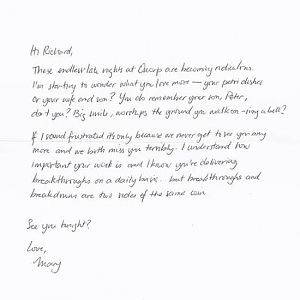 Hi Richard,
These endless late nights at Qcorp are becoming ridiculous.
I'm starting to wonder what you love more – your petri dishes
or your wife and son? You do remember your son, Peter,
don't you? Big smile, worships the ground you walk on – ring a bell?
If I sound frustrated it's only because we never get to see you any
more and we both miss you terribly. I understand how
important your work is and I know you're delivering
breakthroughs on a daily basis... but breakthroughs and
breakdowns are two sides of the same coin.
See you tonight?
Love,
Mary